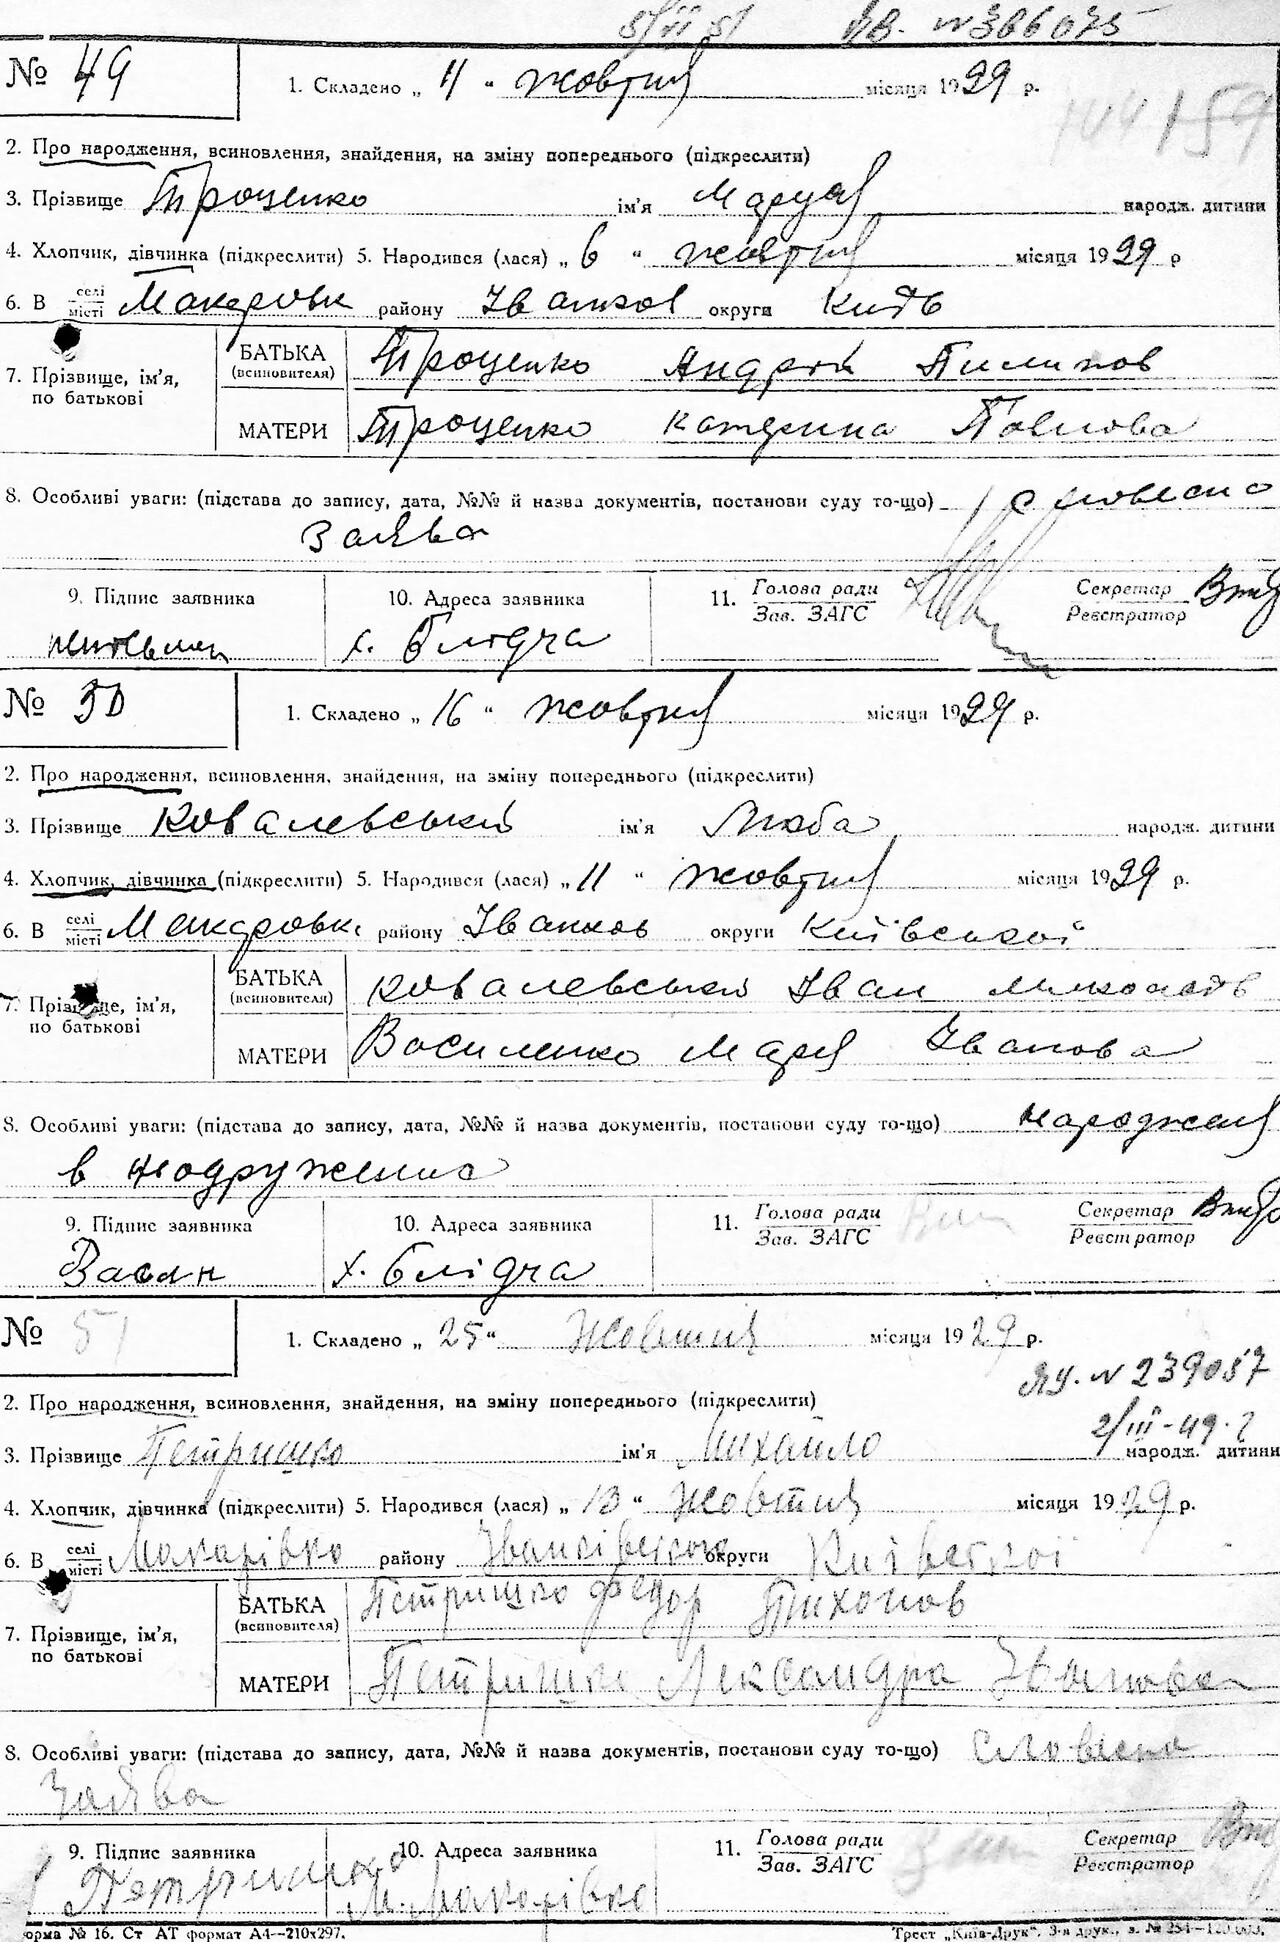 5/VII 51 ЯВ. №366075
№ 49
1. Складено „ 11 “ жовтня місяця 1929 р.
159
2. Про народження, всиновлення, знайдення, на зміну попереднього (підкреслити)
3. Прізвище Троценко ім'я Маруся народж. дитини
4. Хлопчик, дівчинка (підкреслити) 5. Народився (лася) „ 6 “ жовтня місяця 1929 р
6. В селі місті Макаровк району Іванков округи Київ
7. Прізвище, ім'я, по батькові
БАТЬКА (всиновителя) Троценко Андрій Пилипов
МАТЕРИ Троценко Катерина Павлова
8. Особливі уваги: (підстава до запису, дата, №№ й назва документів, постанови суду то-що) словесно
Заява
9. Підпис заявника 10. Адреса заявника 11. Голова ради Зав. ЗАГС Секретар Реєстратор
х. Блідча
№ 50
1. Складено „ 16 “ жовтня місяця 1929 р.
2. Про народження, всиновлення, знайдення, на зміну попереднього (підкреслити)
3. Прізвище Ковалевський ім'я Люба народж. дитини
4. Хлопчик, дівчинка (підкреслити) 5. Народився (лася) „ 11 “ жовтня місяця 1929 р.
6. В селі місті Макаровк. району Іванков округи Київської
7. Прізвище, ім'я, по батькові
БАТЬКА (всиновителя) Ковалевський Іван Миколаїв
МАТЕРИ Василенко Марія Іванова
8. Особливі уваги: (підстава до запису, дата, №№ й назва документів, постанови суду то-що) народженя
в
9. Підпис заявника 10. Адреса заявника 11. Голова ради Зав. ЗАГС Секретар Реєстратор
х. Блідча
№ 51
1. Складено „ 25 “ Жовтня місяця 1929 р.
ЯУ. № 239057
2. Про народження, всиновлення, знайдення, на зміну попереднього (підкреслити)
2/III-49.
3. Прізвище Петришко ім'я Михайло народж. дитини
4. Хлопчик, дівчинка (підкреслити) 5. Народився (лася) „ 13 “ Жовтня місяця 1929 р.
6. В селі місті Макарівка району округи Київської
7. Прізвище, ім'я, по батькові
БАТЬКА (всиновителя) Петришко Федор Тихонов
МАТЕРИ Петришко Лександра Іванова
8. Особливі уваги: (підстава до запису, дата, №№ й назва документів, постанови суду то-що) словесна
Заява
9. Підпис заявника 10. Адреса заявника 11. Голова ради Зав. ЗАГС Секретар Реєстратор
Петришко М. Макарівка
орма № 16. Ст АТ формат А4—210х297. Трест „Київ-Друк“. 3-я друк., з. № 254—120.000.